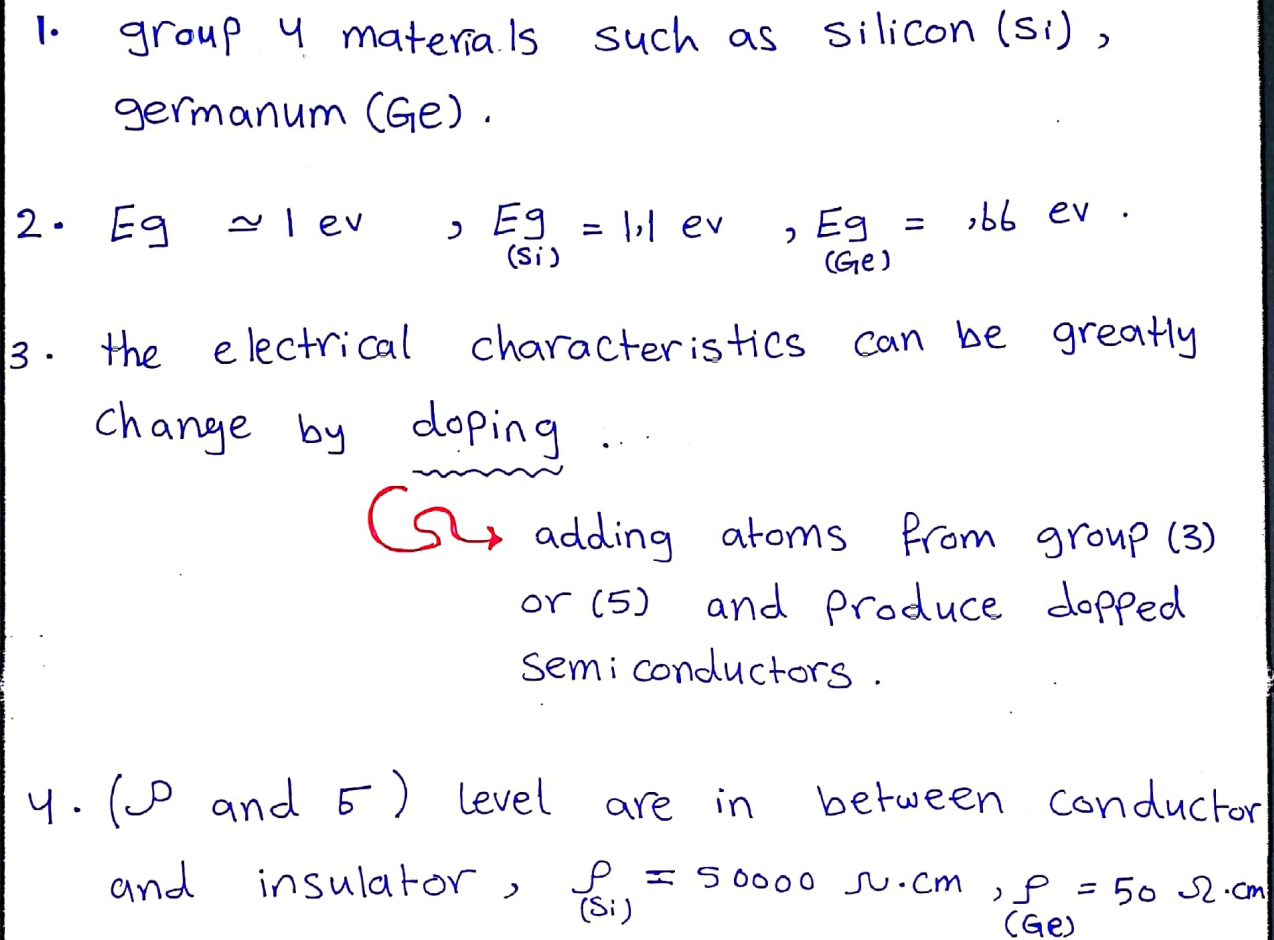 1. group 4 materials such as silicon (Si) ,
germanum (Ge) .
2. Eg ≃ 1 ev , Eg = 1,1 ev , Eg = ,66 ev .
(Si) (Ge)
3. the electrical characteristics can be greatly
change by doping ...
adding atoms from group (3)
or (5) and produce dopped
semi conductors .
4. (ρ and σ) level are in between conductor
and insulator , ρ = 50000 Ω.cm , ρ = 50 Ω.cm
(Si) (Ge)